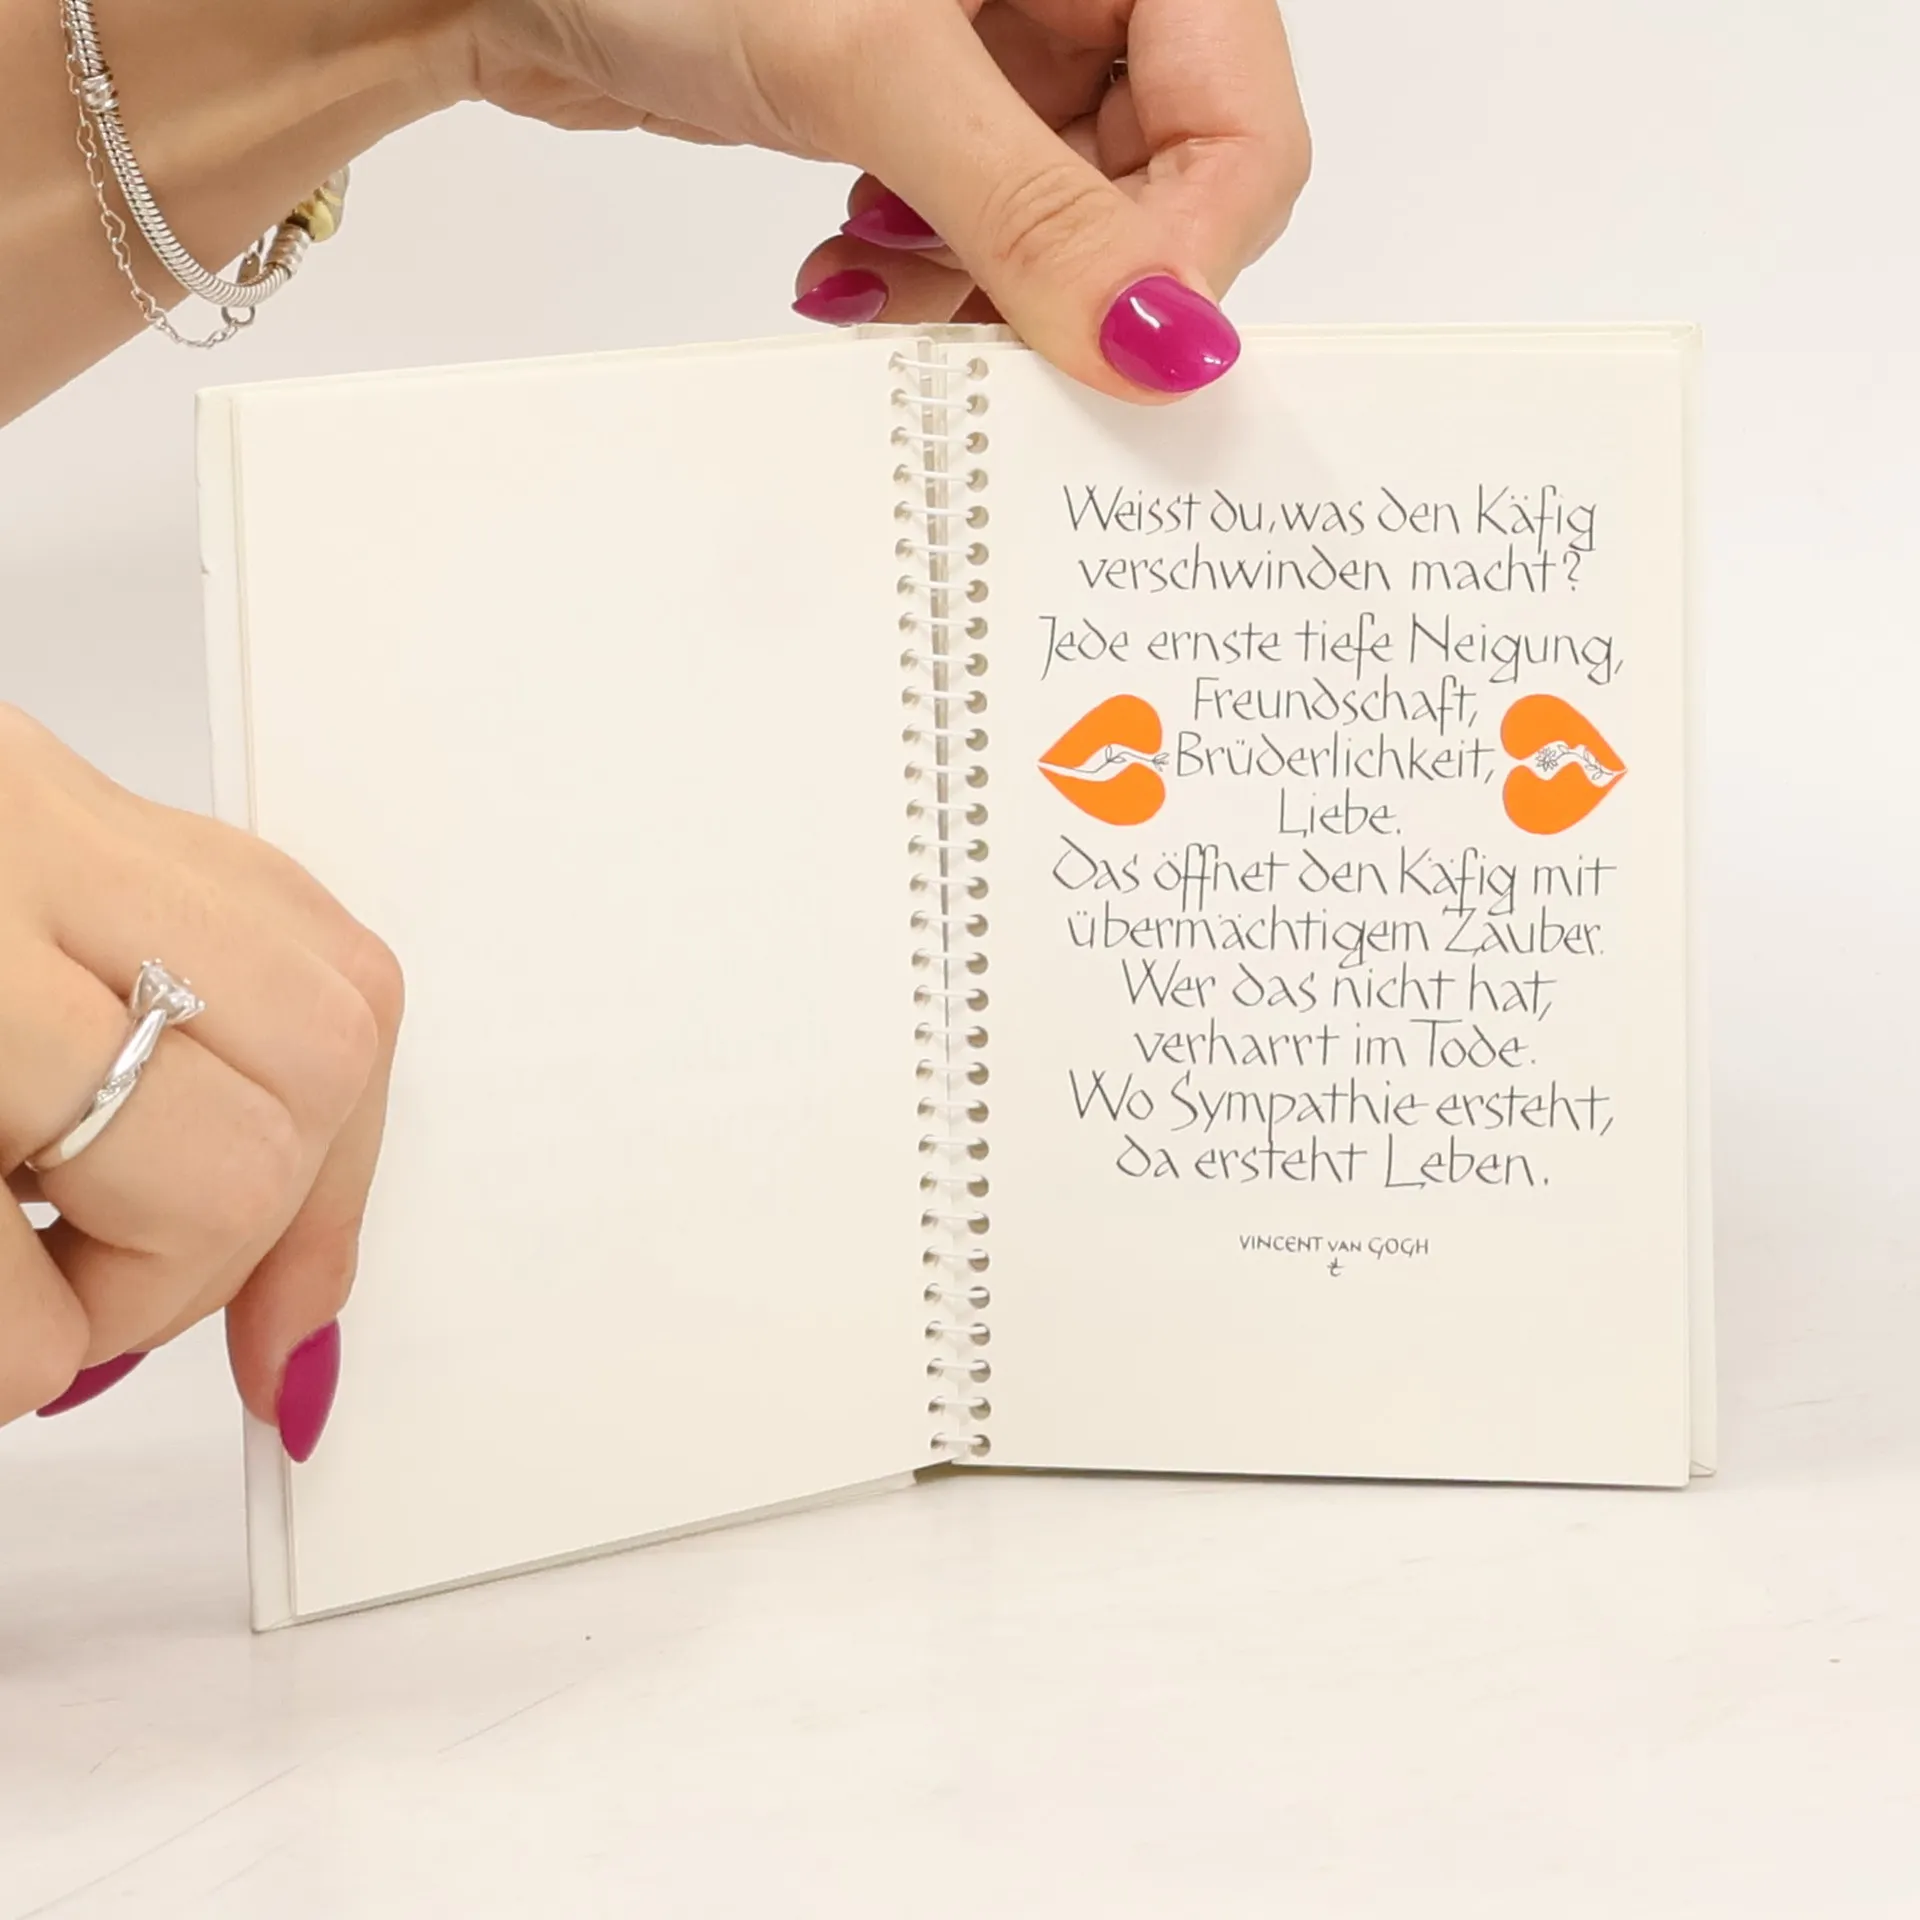 Weisst du, was den Käfig
verschwinden macht?
Jede ernste tiefe Neigung,
Freundschaft,
Brüderlichkeit,
Liebe.
Das öffnet den Käfig mit
übermächtigem Zauber.
Wer das nicht hat,
verharrt im Tode.
Wo Sympathie ersteht,
da ersteht Leben.
VINCENT VAN GOGH